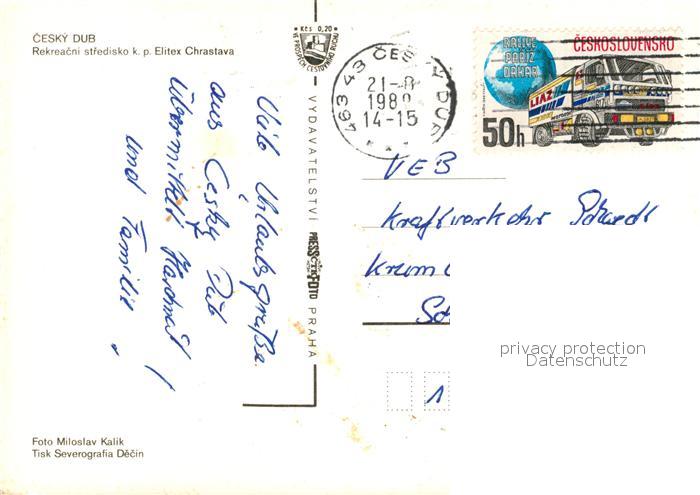 ČESKÝ DUB
Rekreační středisko k. p. Elitex Chrastava
Kčs 0,20
VE PROSPĚCH CESTOVNÍHO RUCHU
VYDAVATELSTVÍ PRESSFOTO PRAHA
463 43 ČESKÝ DUB
21-8
1989
14-15
RALLYE
PAŘÍŽ
DAKAR
ČESKOSLOVENSKO
LIAZ
50h
Viele Urlaubsgrüße
aus Česky Dub
übermittelt
und Familie.
VEB
Kraftverkehr
1
privacy protection
Datenschutz
Foto Miloslav Kalík
Tisk Severografia Děčín